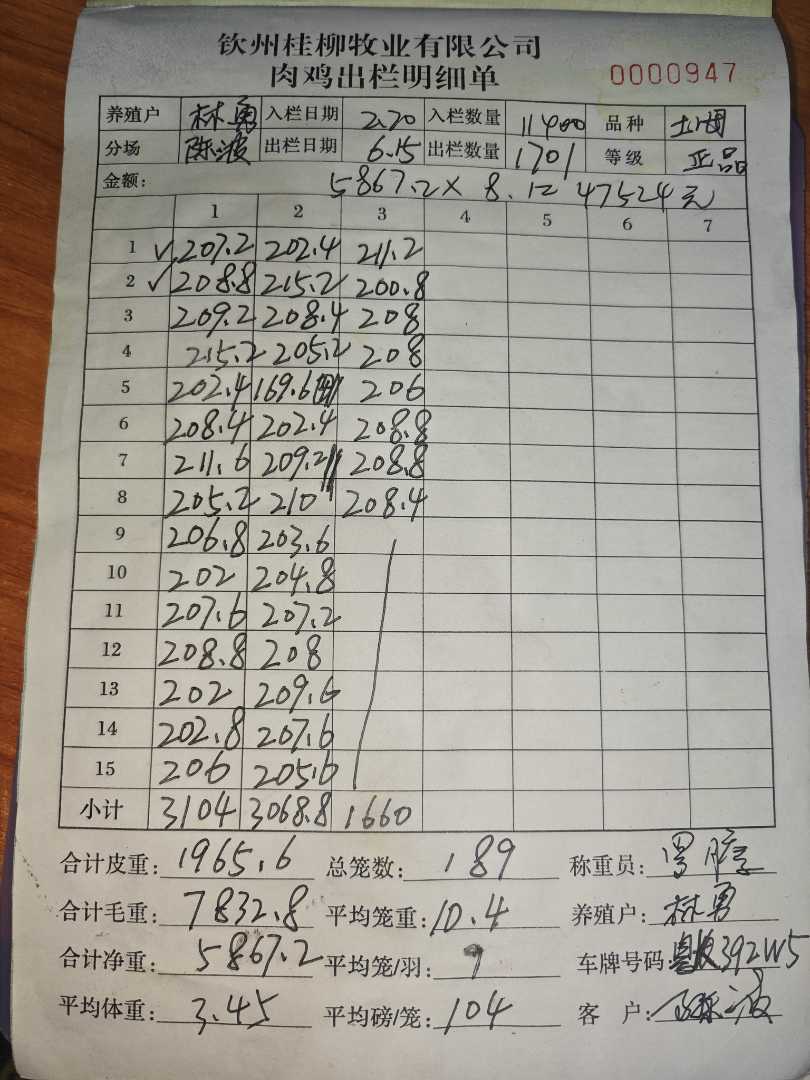 钦州桂柳牧业有限公司
肉鸡出栏明细单 0000947
养殖户 林勇 入栏日期 2.20 入栏数量 11400 品种
分场 陈波 出栏日期 6.15 出栏数量 1701 等级 正品
金额: 5867.2 × 8.1 = 47524元
1 2 3 4 5 6 7
1 ✓ 207.2 202.4 211.2
2 ✓ 208.8 215.2 200.8
3 209.2 208.4 208
4 215.2 205.2 208
5 202.4 169.6 206
6 208.4 202.4 208.8
7 211.6 209.2 208.8
8 205.2 210 208.4
9 206.8 203.6
10 202 204.8
11 207.6 207.2
12 208.8 208
13 202 209.6
14 202.8 207.6
15 206 205.6
小计 3104 3068.8 1660
合计皮重: 1965.6 总笼数: 189 称重员:
合计毛重: 7832.8 平均笼重: 10.4 养殖户: 林勇
合计净重: 5867.2 平均笼/羽: 9 车牌号码: 392W5
平均体重: 3.45 平均磅/笼: 104 客 户: 陈波